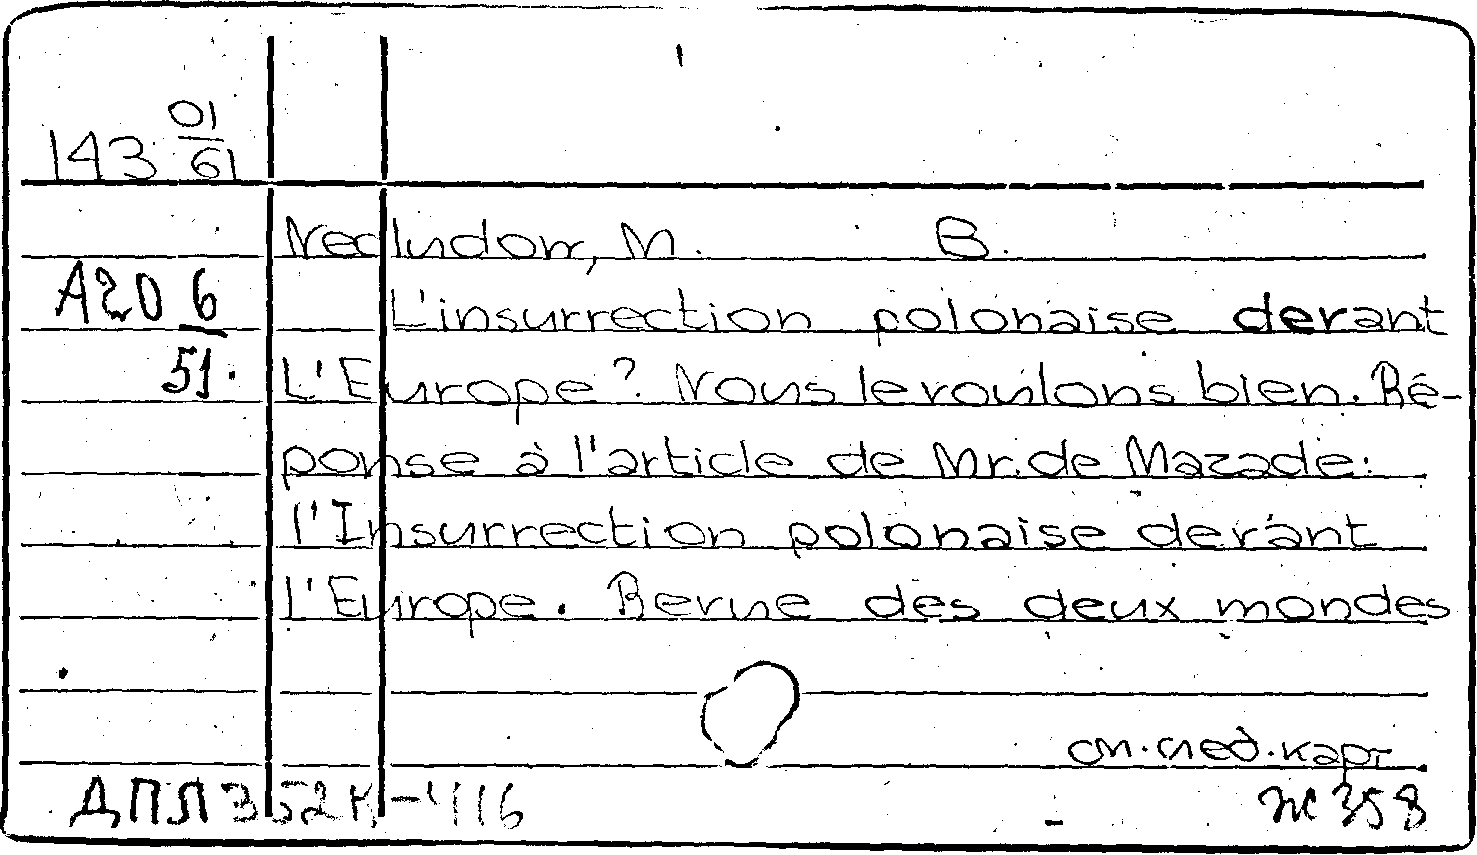 143 01/61
Necludow, M. B.
A20 6/51.
L'insurrection polonaise devant
L'Europe? Nous le voulons bien. Ré-
ponse à l'article de Mr. de Mazade:
l'Insurrection polonaise devant
l'Europe. Revue des deux mondes
см. след. карт
ДПЛ 352К-416
Ж 358